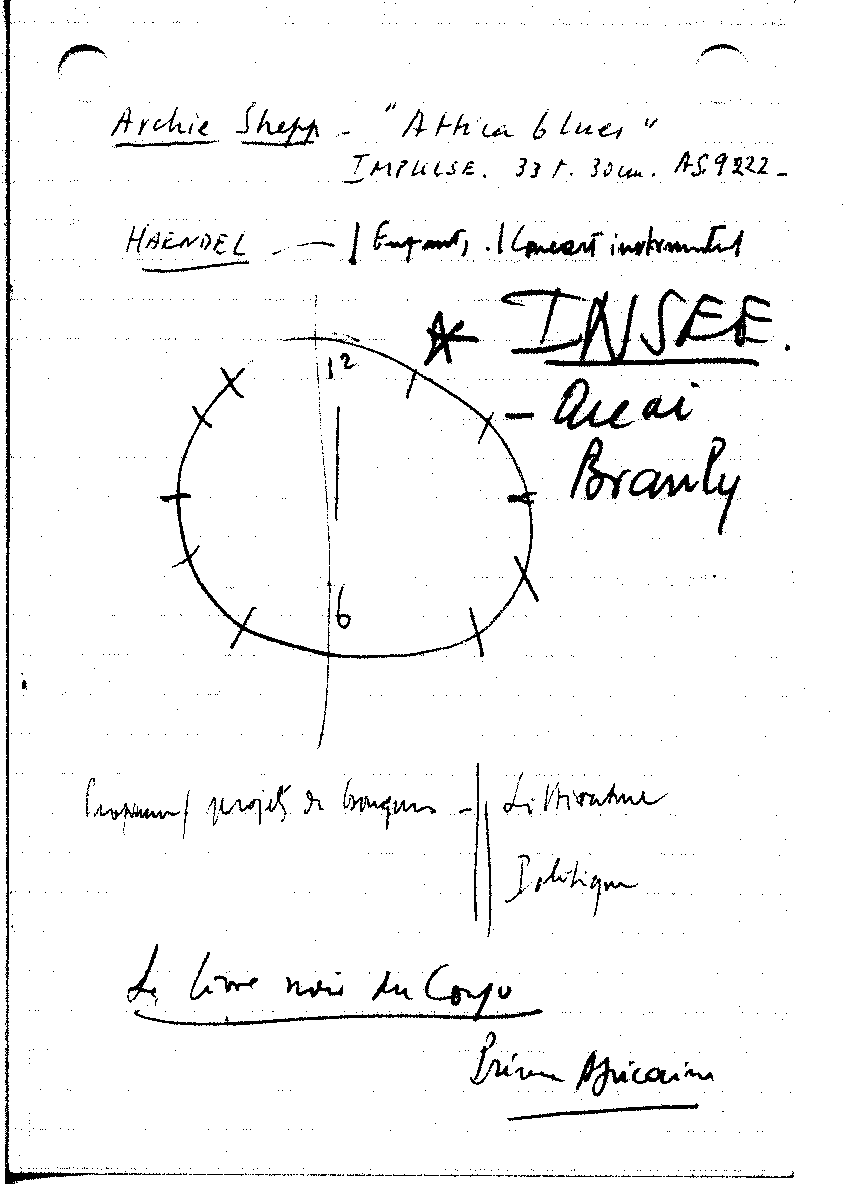 Archie Shepp - "Attica blues"
IMPULSE. 33 t. 30 cm. AS.9222 -
HAENDEL - | Enfants, . | Concert instrumental
INSEE.
12
- Quai
Branly
6
projets de - Littérature
Politique
Le livre noir du Congo
Africaine